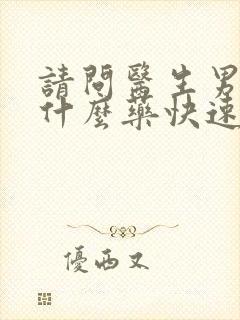 請問醫生男
什麼藥快速
優西又